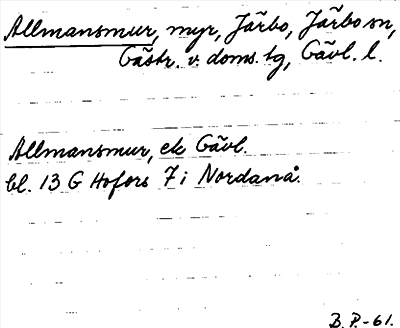 Allmansmur, myr, Järbo, Järbo sn,
Gästr. v. doms. tg, Gävl. l.
Allmansmur, ek Gävl.
bl. 13 G Hofors 7 i Nordanå.
B. P. -61.